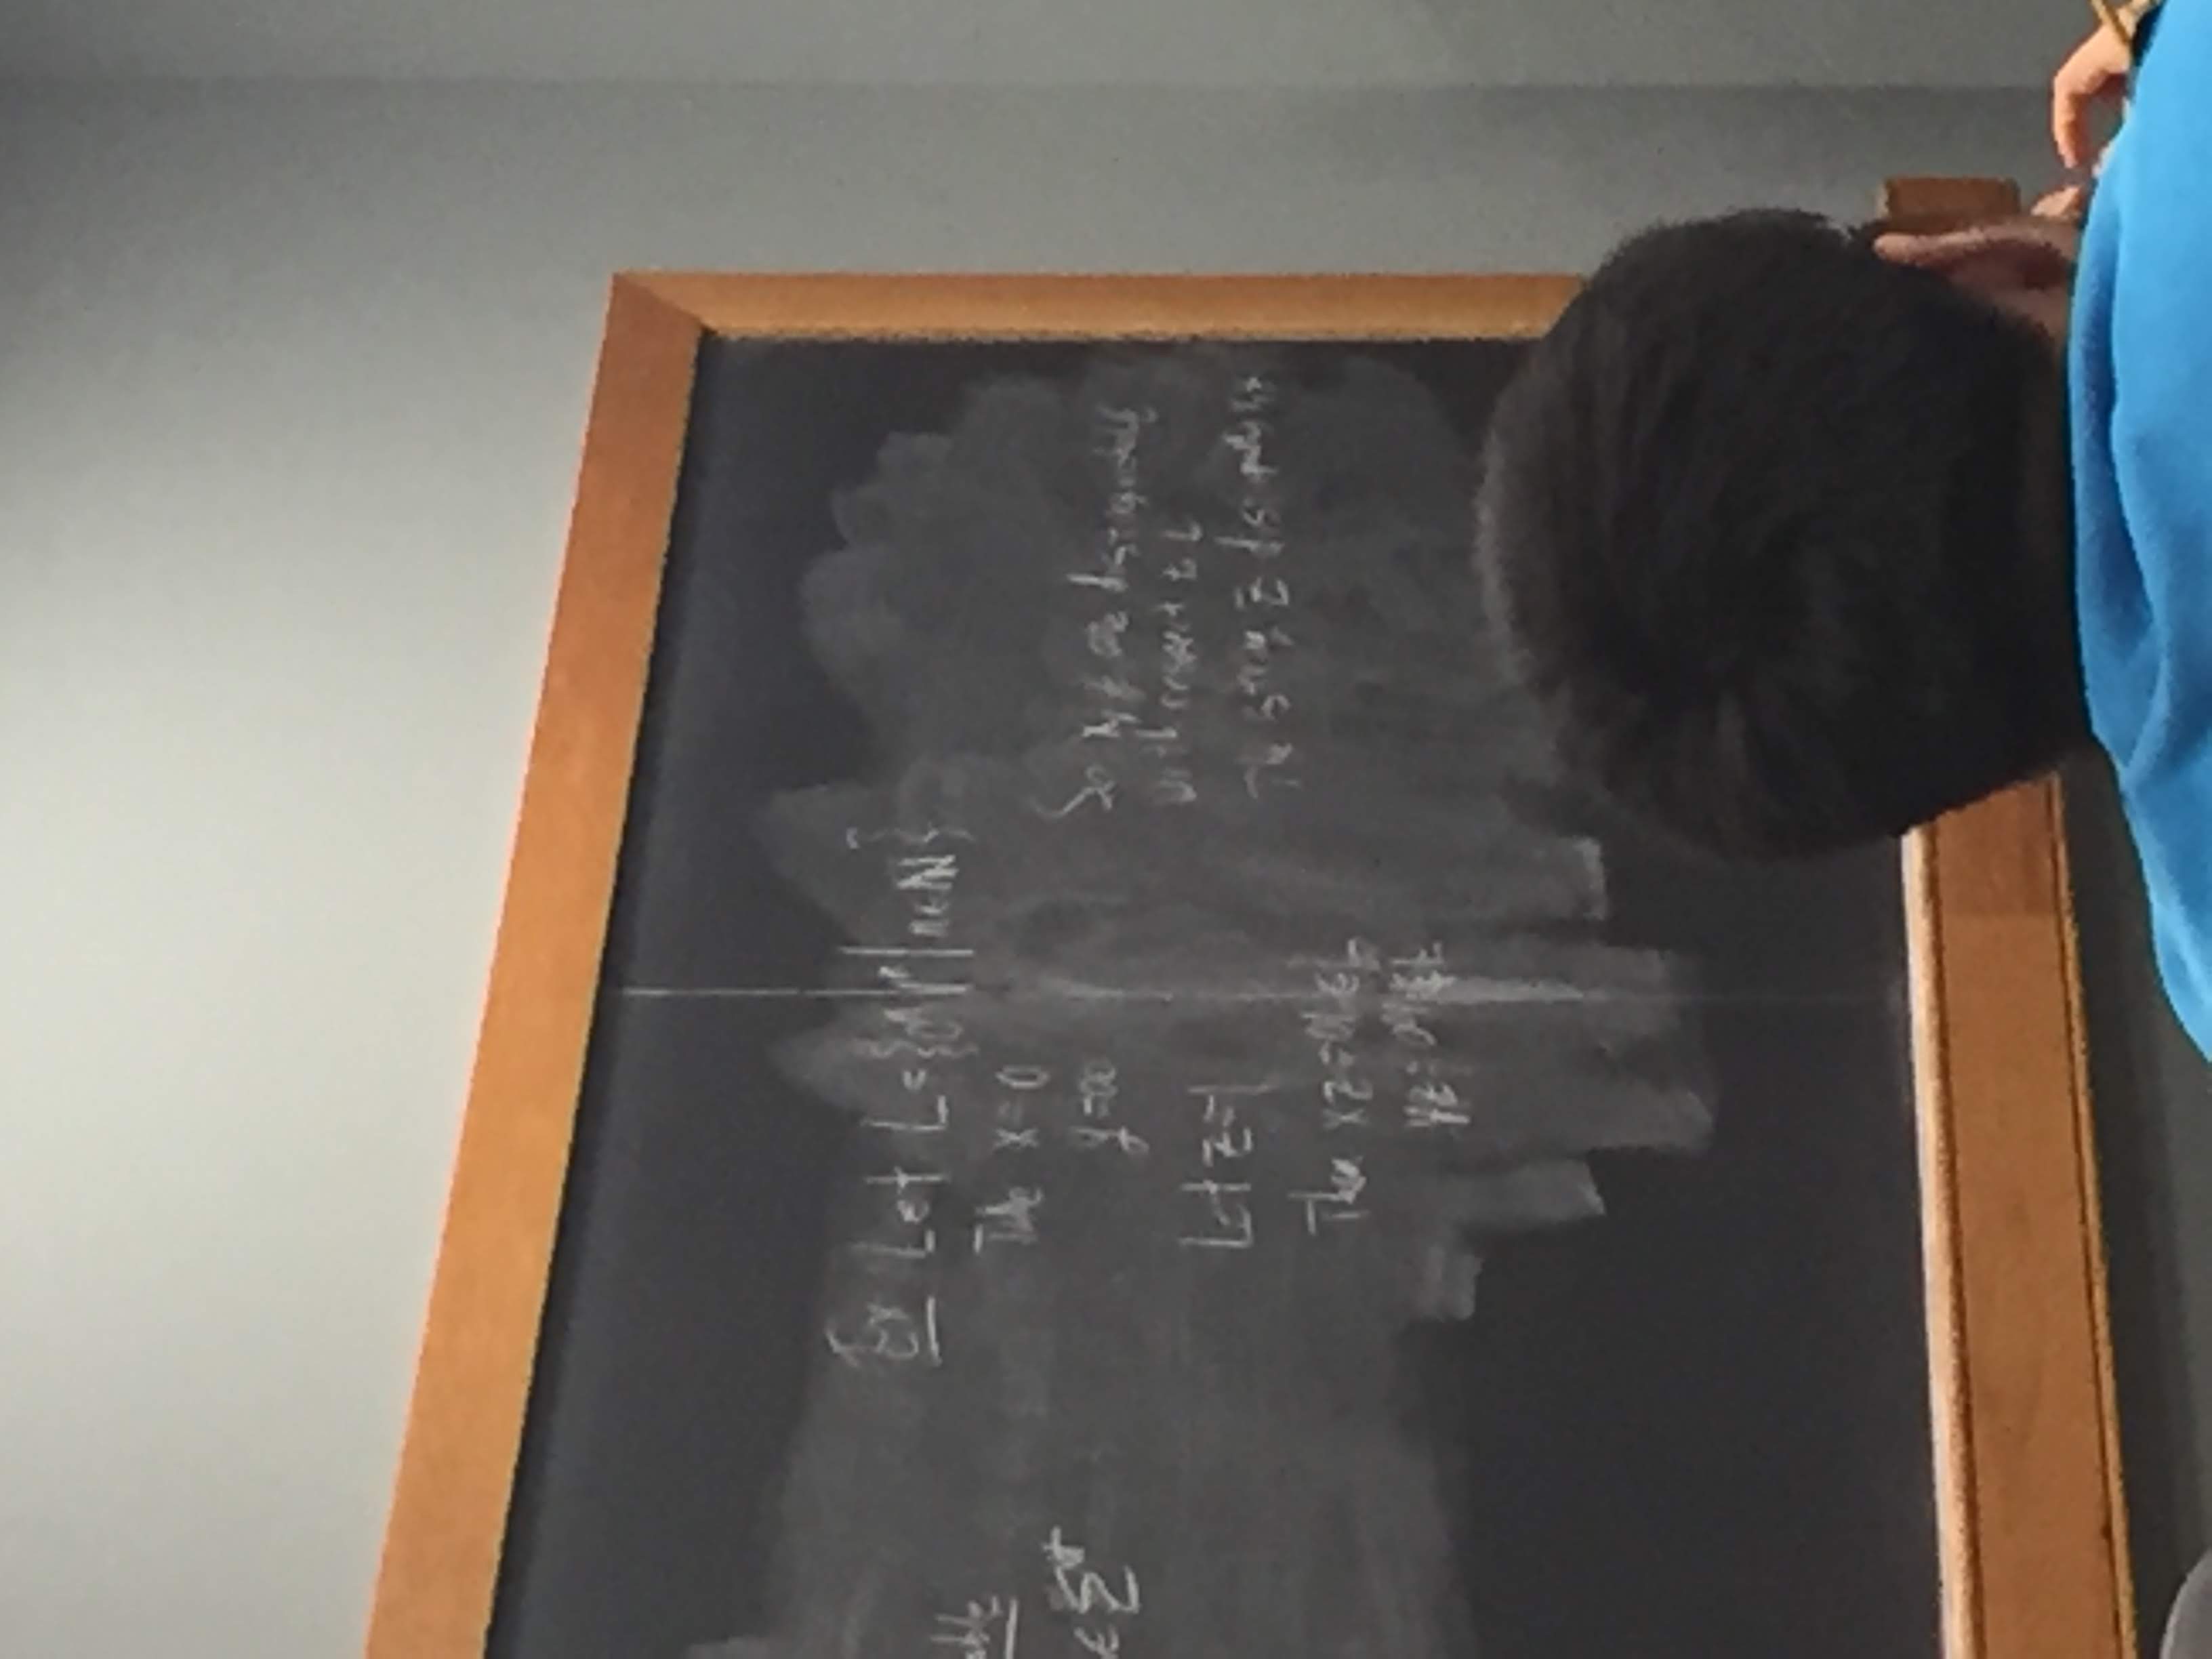 able
∈ Σ*
Ex Let L = {0ⁿ1ⁿ | n ∈ ℕ}
Take x = 0
y = 00
Let z = 1
Then xz = 01 ∈ L
yz = 001 ∉ L
So x, y are distinguishable
with respect to L
The string z distinguishes x, y